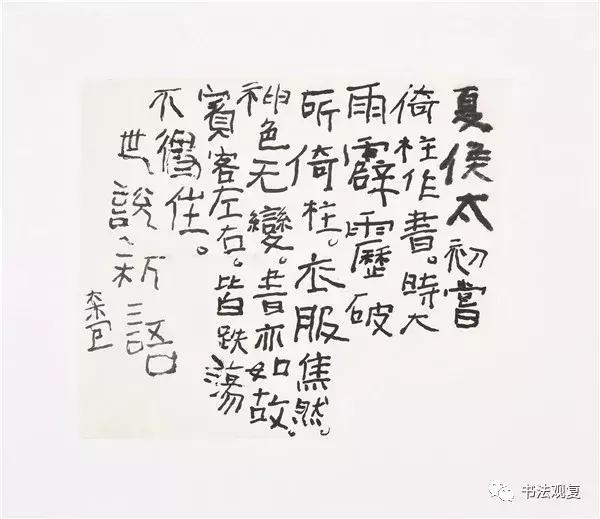 夏侯太初嘗
倚柱作書。時大
雨霹靂破
所倚柱。衣服焦然。
神色无變。書亦如故。
賓客左右。皆跌蕩
不得住。
世說新語
书法观复